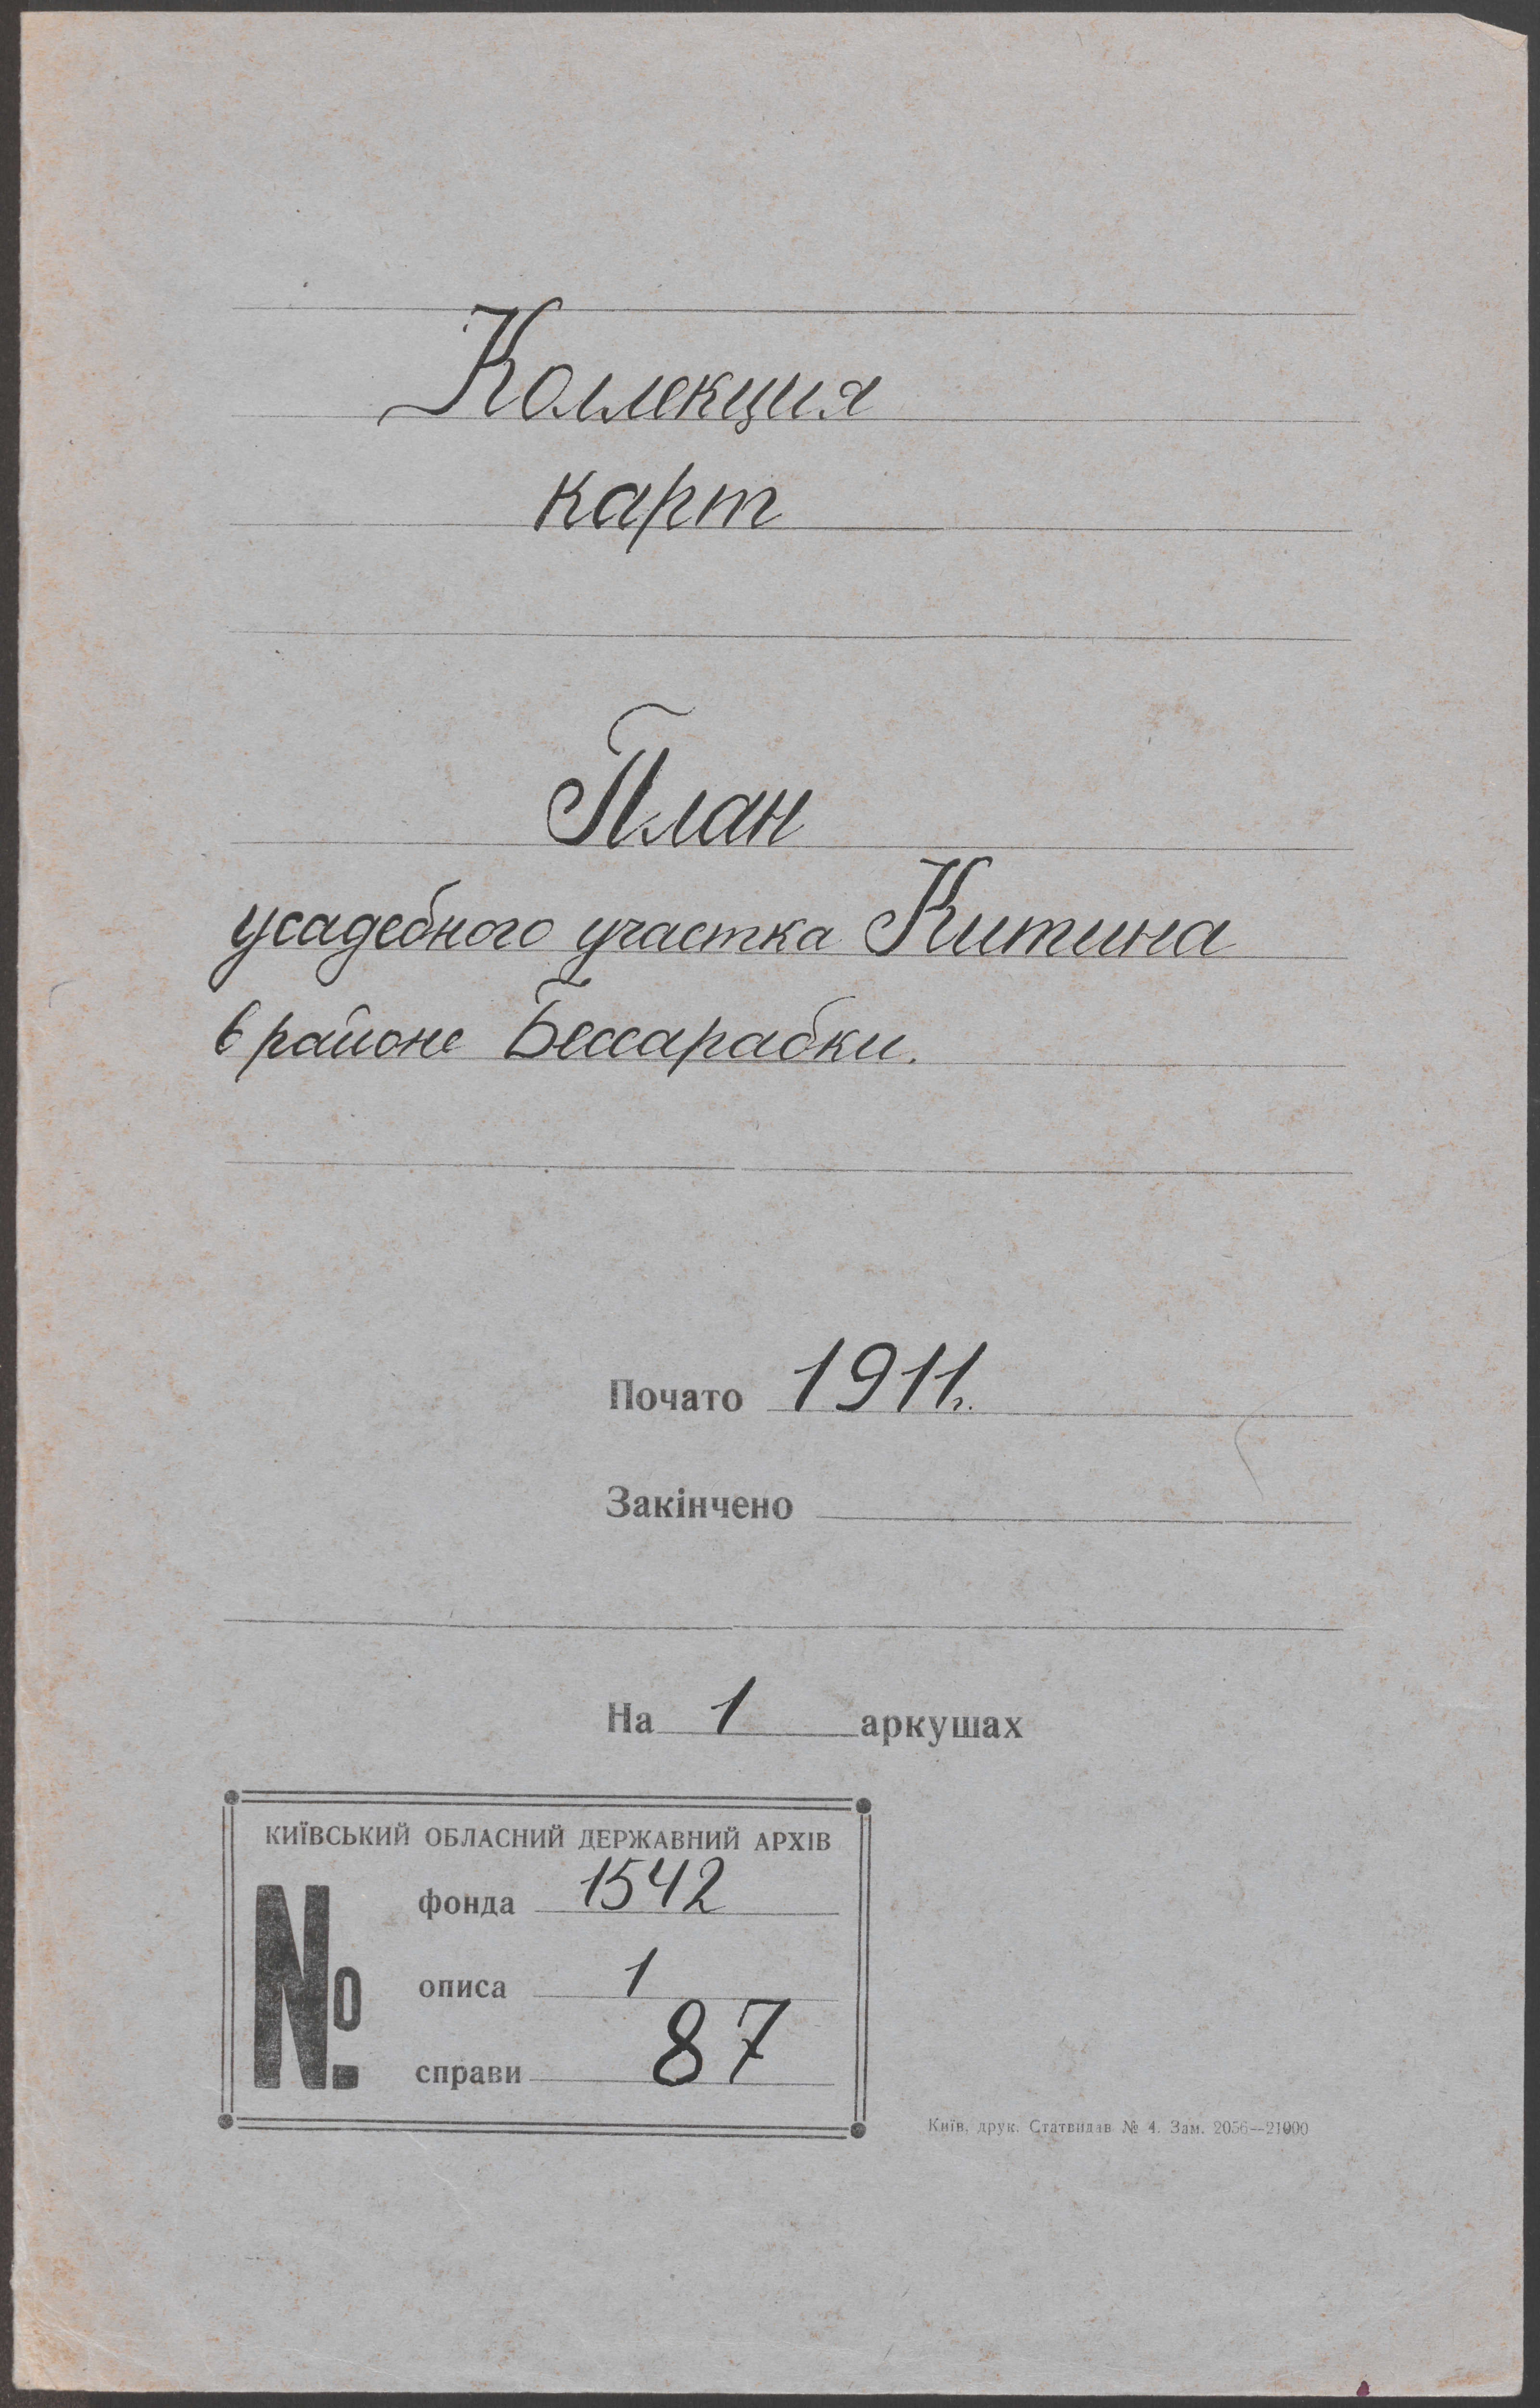 Коллекция
карт
План
усадебного участка Китина
в районе Бессарабки.
Почато 1911г.
Закінчено
На 1 аркушах
КИЇВСЬКИЙ ОБЛАСНИЙ ДЕРЖАВНИЙ АРХІВ
№
фонда 1542
описа 1
справи 87
Київ, друк. Статвидав № 4. Зам. 2056—21000